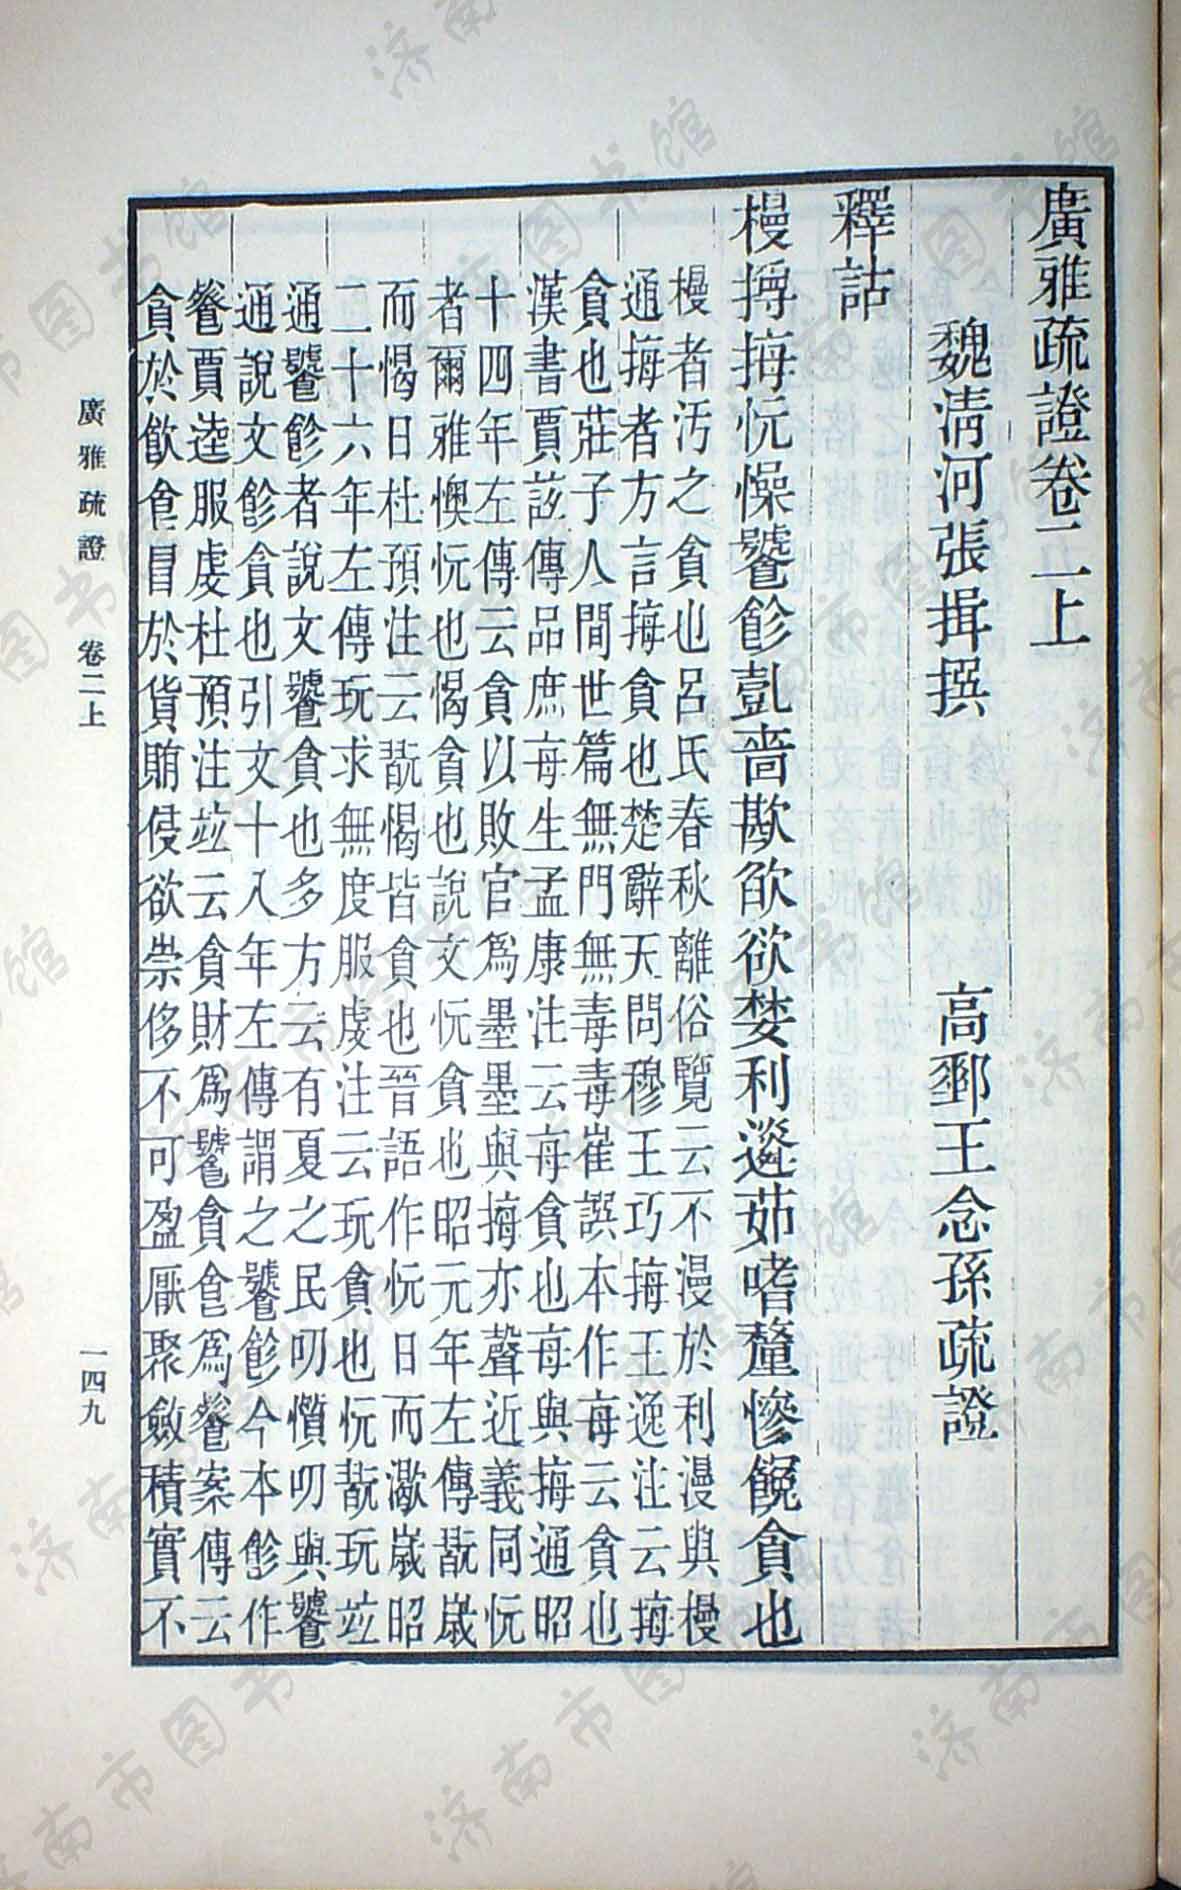 廣雅疏證卷二上
魏清河張揖撰 高郵王念孫疏證
釋詁
㮂挴忨懆饕飻嗇欺欲婪利遴茹嗜釐慘餽貪也
者汚之貪也呂氏春秋離俗覽云不漫於利漫與
通挴者方言挴貪也楚辭天問穆王巧挴王逸注云挴
貪也莊子人間世篇無門無毒毒崔譔本作每云貪也
漢書賈誼傳品庶每生孟康注云每貪也每與挴通昭
十四年左傳云貪以敗官爲墨墨與挴亦聲近義同忨
者爾雅懊忨也愒貪也說文忨貪也昭元年左傳翫歲
而愒日杜預注云翫愒皆貪也晉語作忨日而㵣歲昭
二十六年左傳玩求無度服虔注云玩貪也忨翫玩竝
通饕飻者說文饕貪也多方云有夏之民叨懫叨與饕
通說文飻貪也引文十八年左傳謂之饕飻今本飻作
餮賈逵服虔杜預注竝云貪財爲饕貪食爲餮案傳云
貪於飮食冒於貨賄侵欲崇侈不可盈厭聚斂積實不
廣雅疏證 卷二上
一四九